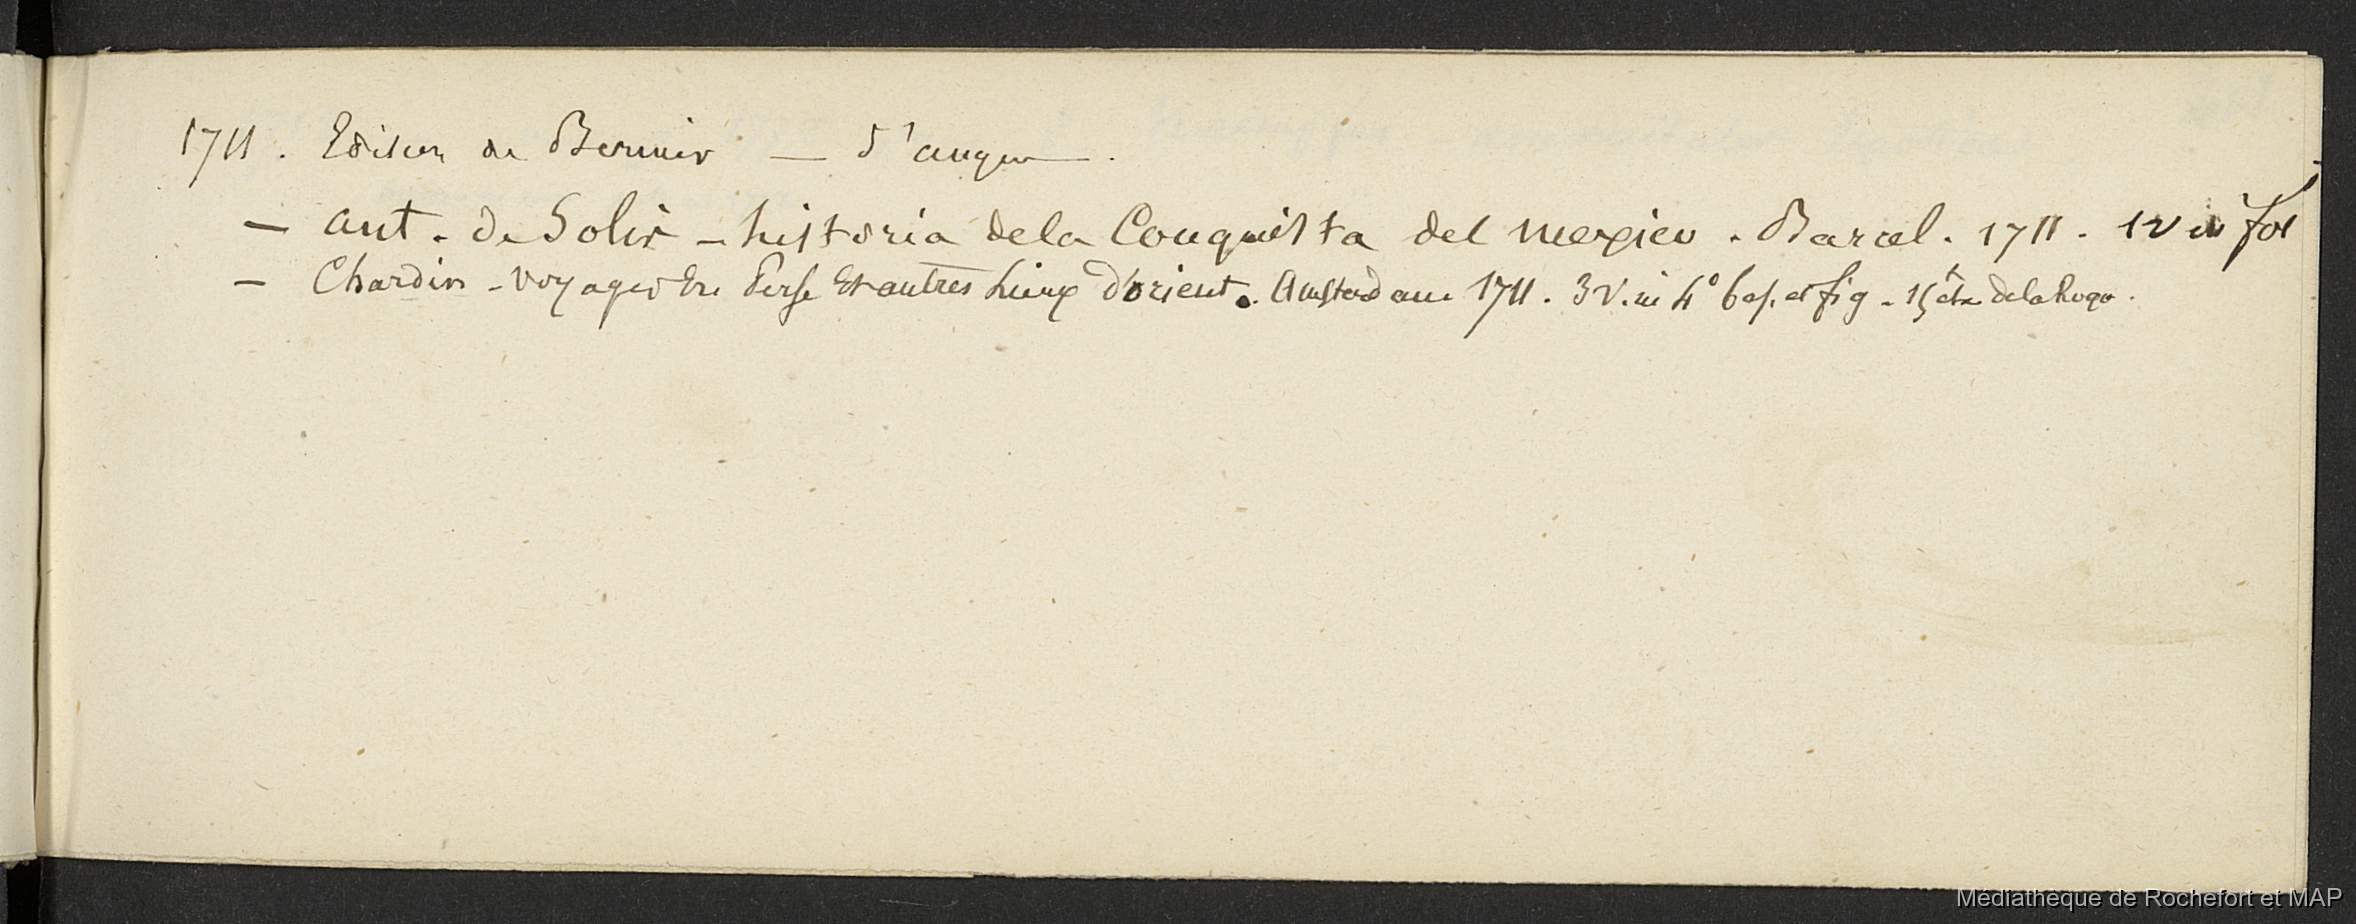 1711. Edition de Bernier — S'auque.
— Ant. de Solis — historia dela Conquista del mexico. Barcel. 1711. 1 v in fol
— Chardin — voyages En Perse Et autres Lieux D'orient. Amsterdam 1711. 3 v. in 4° et fig — dela Roque.
Médiathèque de Rochefort et MAP